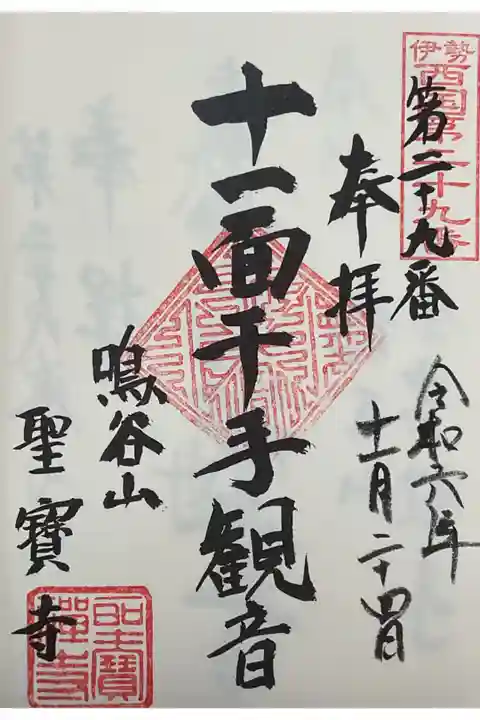 伊勢
西国第二十九番
第二十九番
奉拝
令和六年
十一月二十四日
十一面千手観音
鳴谷山
聖寶寺
聖寶禅寺